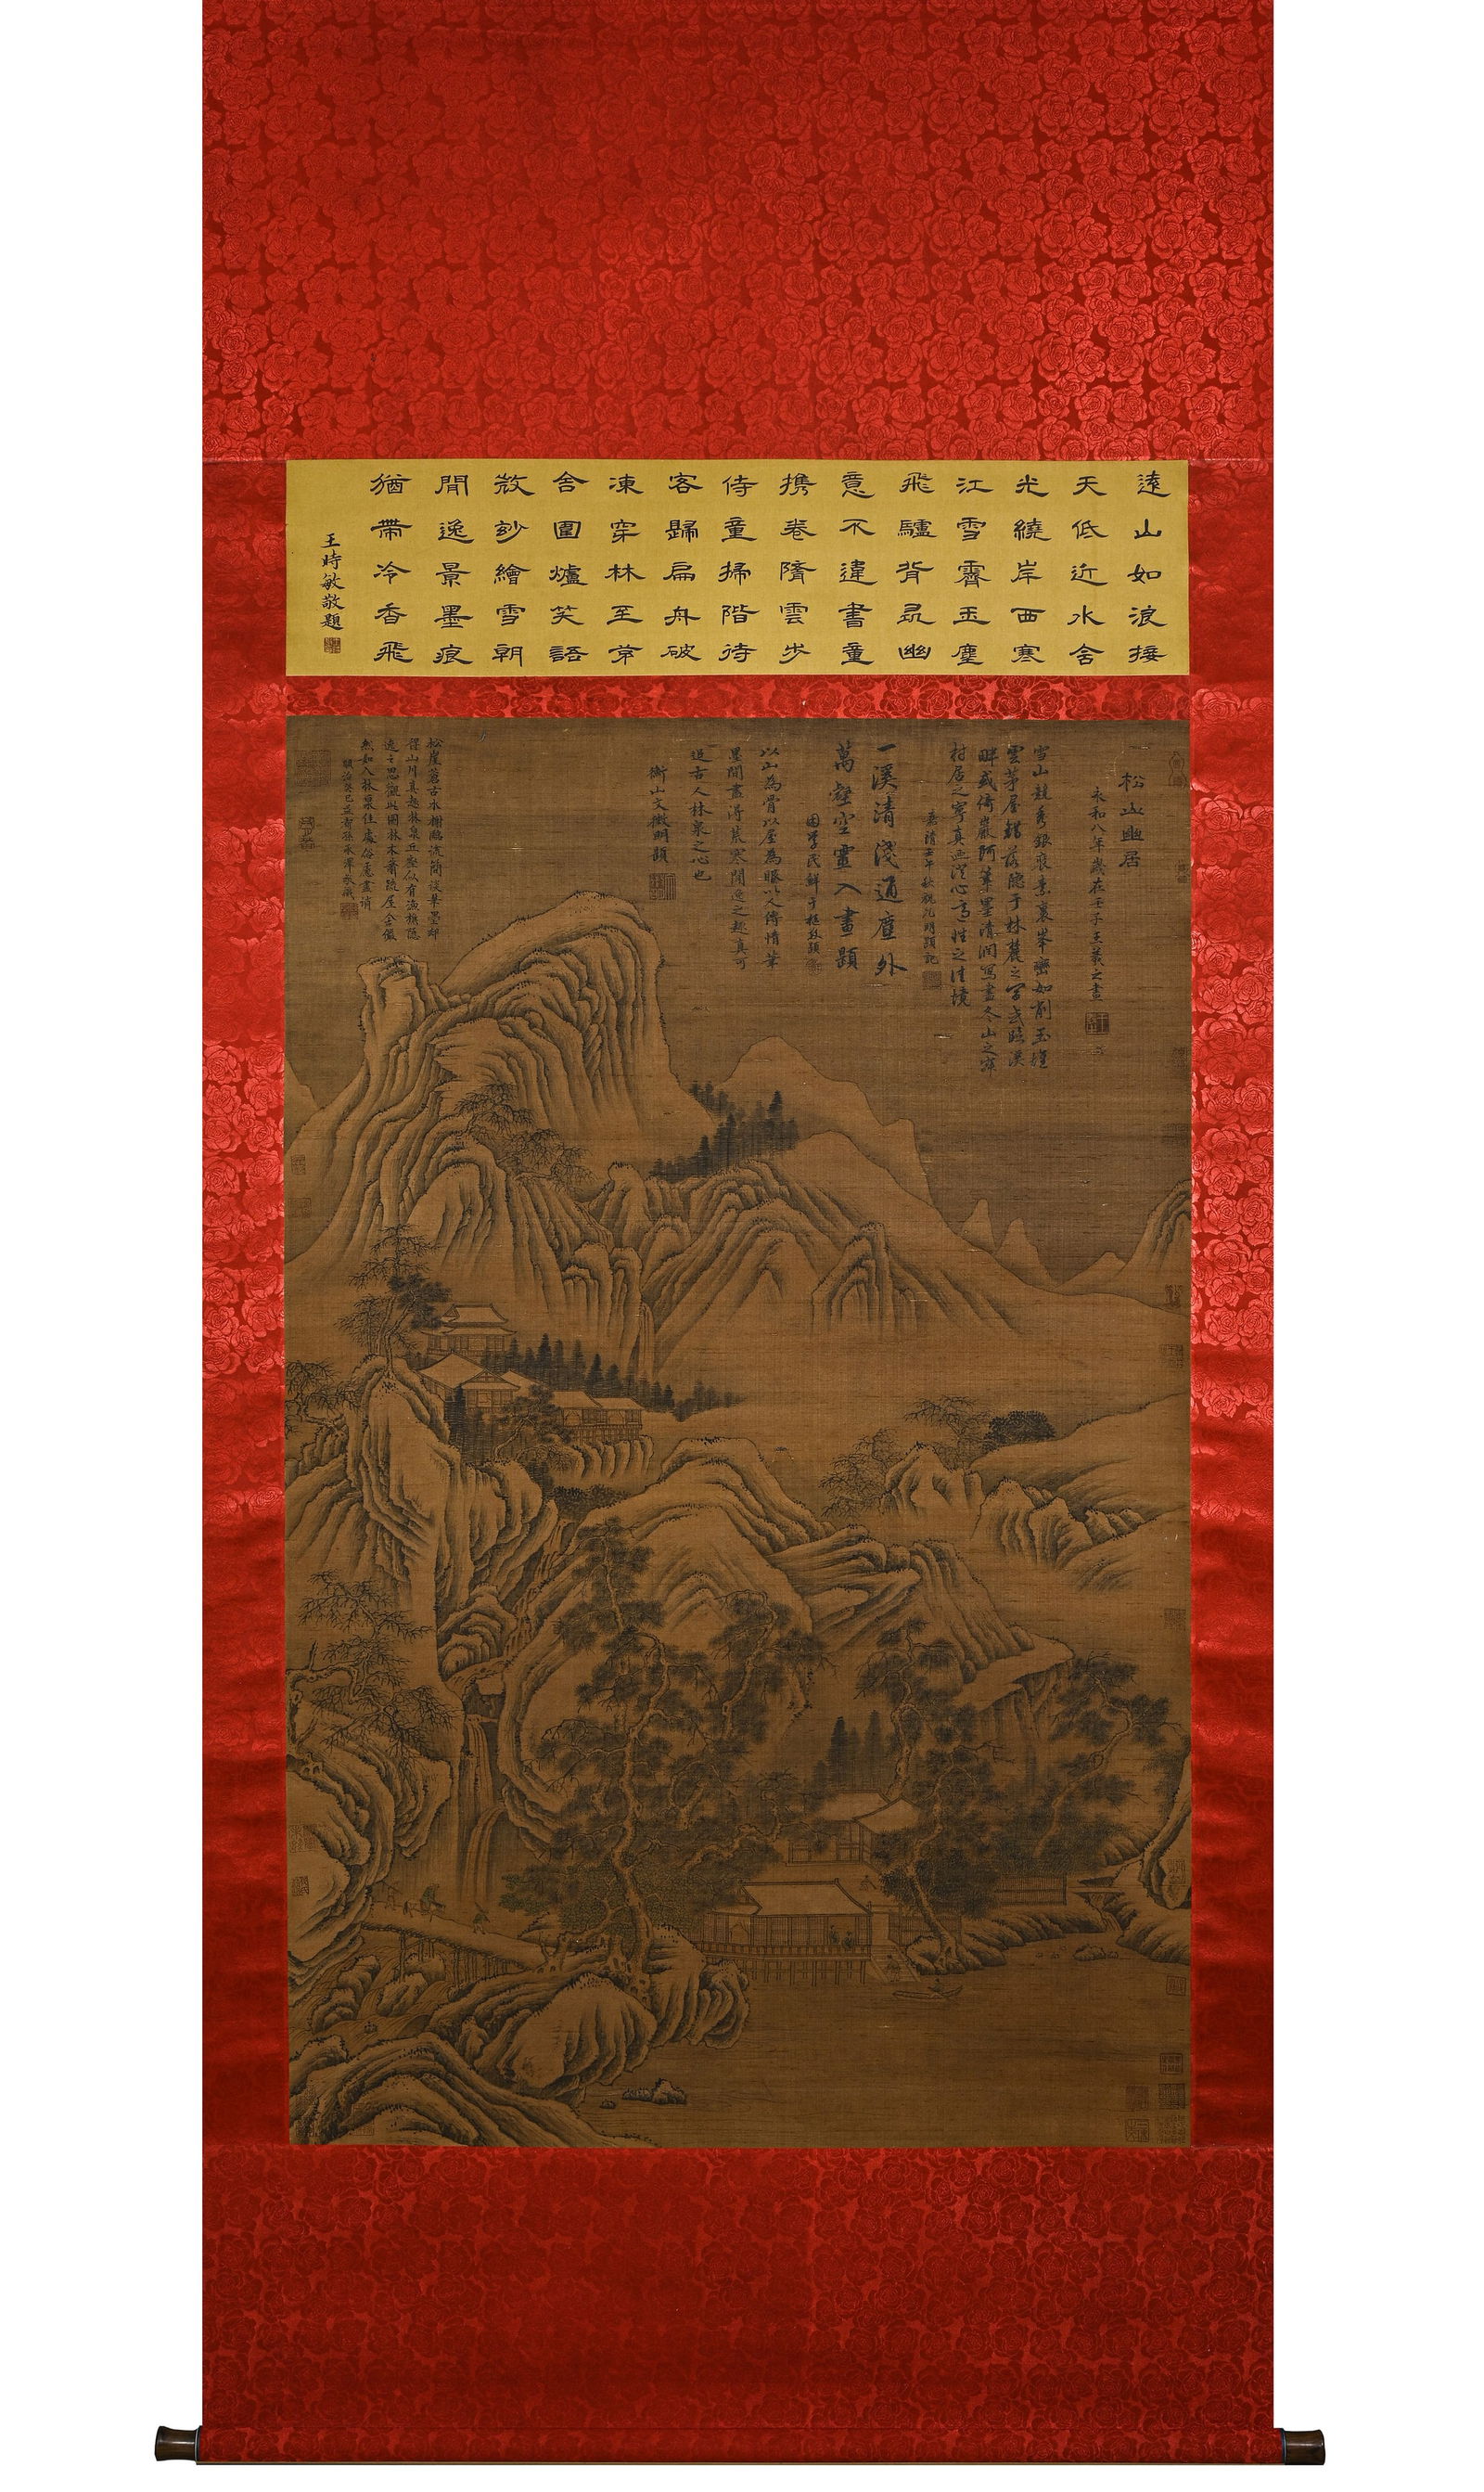 遠山如浪接
天低近水舍
光繞岸西寒
江雪霽玉塵
飛驢背尋幽
意不違書童
携卷隨雲步
侍童掃階待
客歸扁舟破
凍穿林至茅
舍圍爐笑語
放妙繪雪朝
閒逸景墨痕
猶帶冷香飛
王時敏敬題
松山幽居
永和八年歲在壬子王羲之畫
雪山競秀銀裝素裹峯巒如削玉
雲茅屋錯落隱于林麓之間或臨溪
畔或倚巖阿筆墨清潤寫盡冬山之寂
村居之寧真無澄心高性之佳境
一溪清淺通塵外
萬壑空靈入畫題
困學民鮮于樞敬題
以山為骨以屋為眼以人傳情筆
墨間盡得荒寒閒逸之趣真可
追古人林泉之心也
衡山文徵明題
松崖蒼古水榭臨流簡淡筆墨却
得山川真趣林泉丘壑似有漁樵隱
逸之思觀此圖林木蕭疏屋舍儼
然如入林泉佳處俗慮盡消